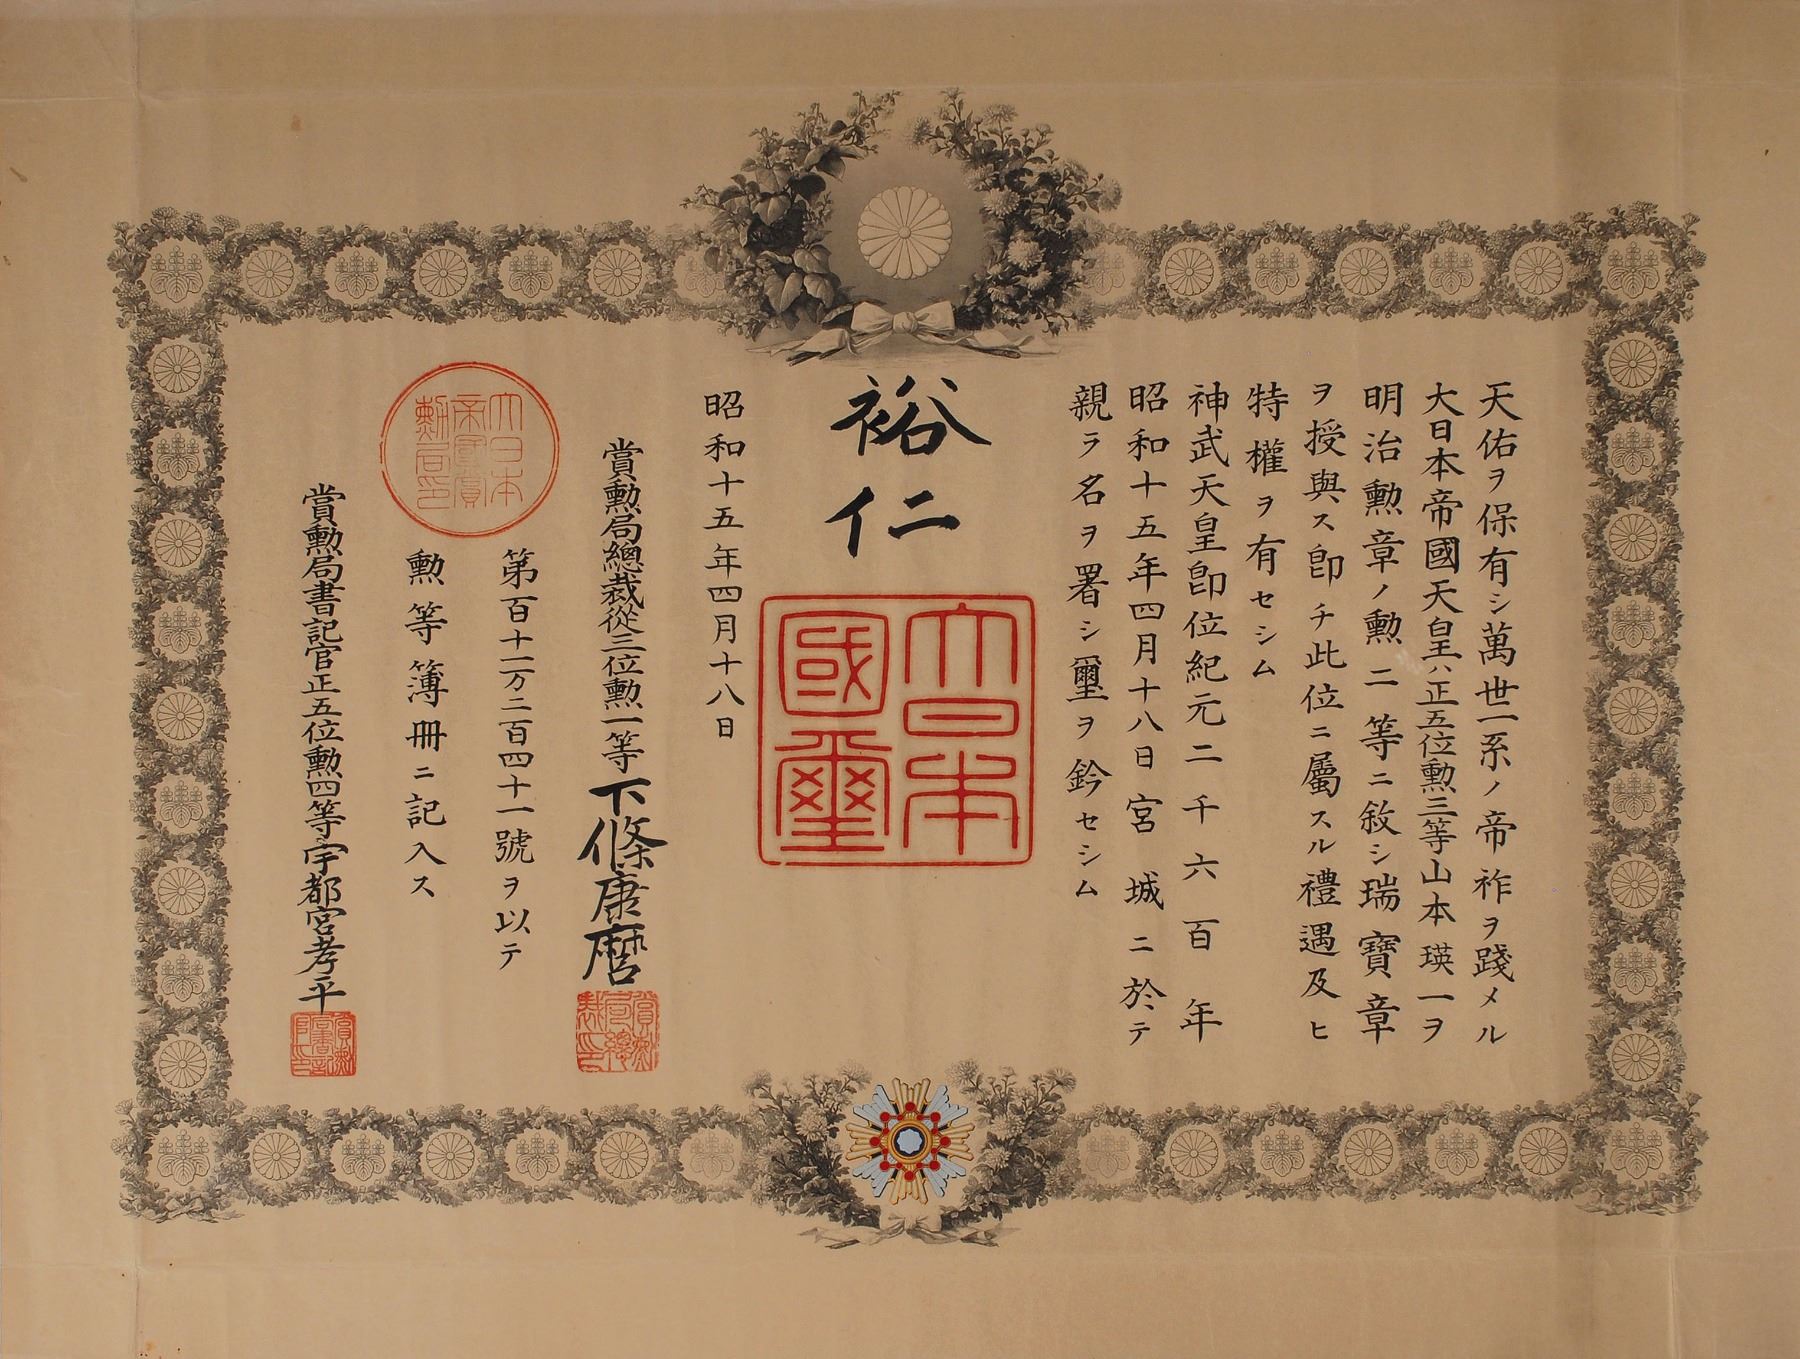 天佑ヲ保有シ萬世一系ノ帝祚ヲ踐メル
大日本帝國天皇ハ正五位勲三等山本瑛一ヲ
明治勲章ノ勲二等ニ敘シ瑞寶章
ヲ授與ス卽チ此位ニ屬スル禮遇及ヒ
特權ヲ有セシム
神武天皇卽位紀元二千六百年
昭和十五年四月十八日宮城ニ於テ
親ラ名ヲ署シ璽ヲ鈐セシム
裕仁
大日本國璽
昭和十五年四月十八日
賞勲局總裁從三位勲一等下條康麿
賞勲局總裁之印
第百十一万二百四十一號ヲ以テ
勲等簿冊ニ記入ス
大日本帝國賞勲局印
賞勲局書記官正五位勲四等宇都宮孝平
賞勲局書記官印